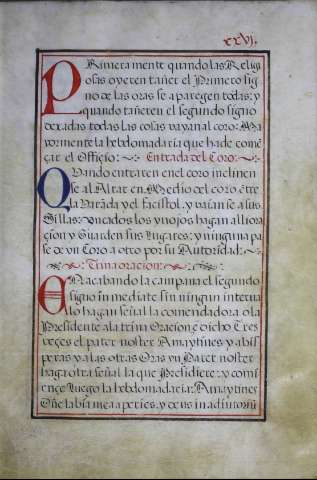 xxvj.
Rimera mente quando las Religi
osas oyeren tañer el Primero sig
no de las oras se aparegen todas: y
quando tañeren el segundo signo
dexadas todas las cosas vayan al coro: Ma
yormente la hebdomadaria que ha de comē
çar el Officio: Entrada del Coro:
Quando entraren en el coro inclinen
se al Altar en Medio del coro ētre
la Parada y el facistol, y vaian se a sus
Sillas: y ncados los ynojos hagan alli ora
cion y Guarden sus lugares: y ninguna pa
se de vn Coro a otro por su Autoridad:
Trina oracion:
En acabando la campana el segundo
signo in mediate sin ningun interua
lo hagan señal la comendadora o la
Presidente a la trina Oracion e dicho Tres
veçes el pater noster A maytines y a bis
peras y a las otras Oras vn Pater noster
haga otra señal la que Presidiere: y comi
ençe luego la hebdomadaria: A maytines
Dñe labia mea aperies, y deus in adiutoriū